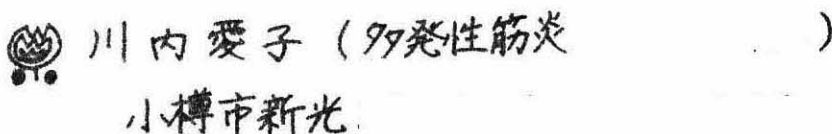 川内愛子（多発性筋炎　　　）
小樽市新光